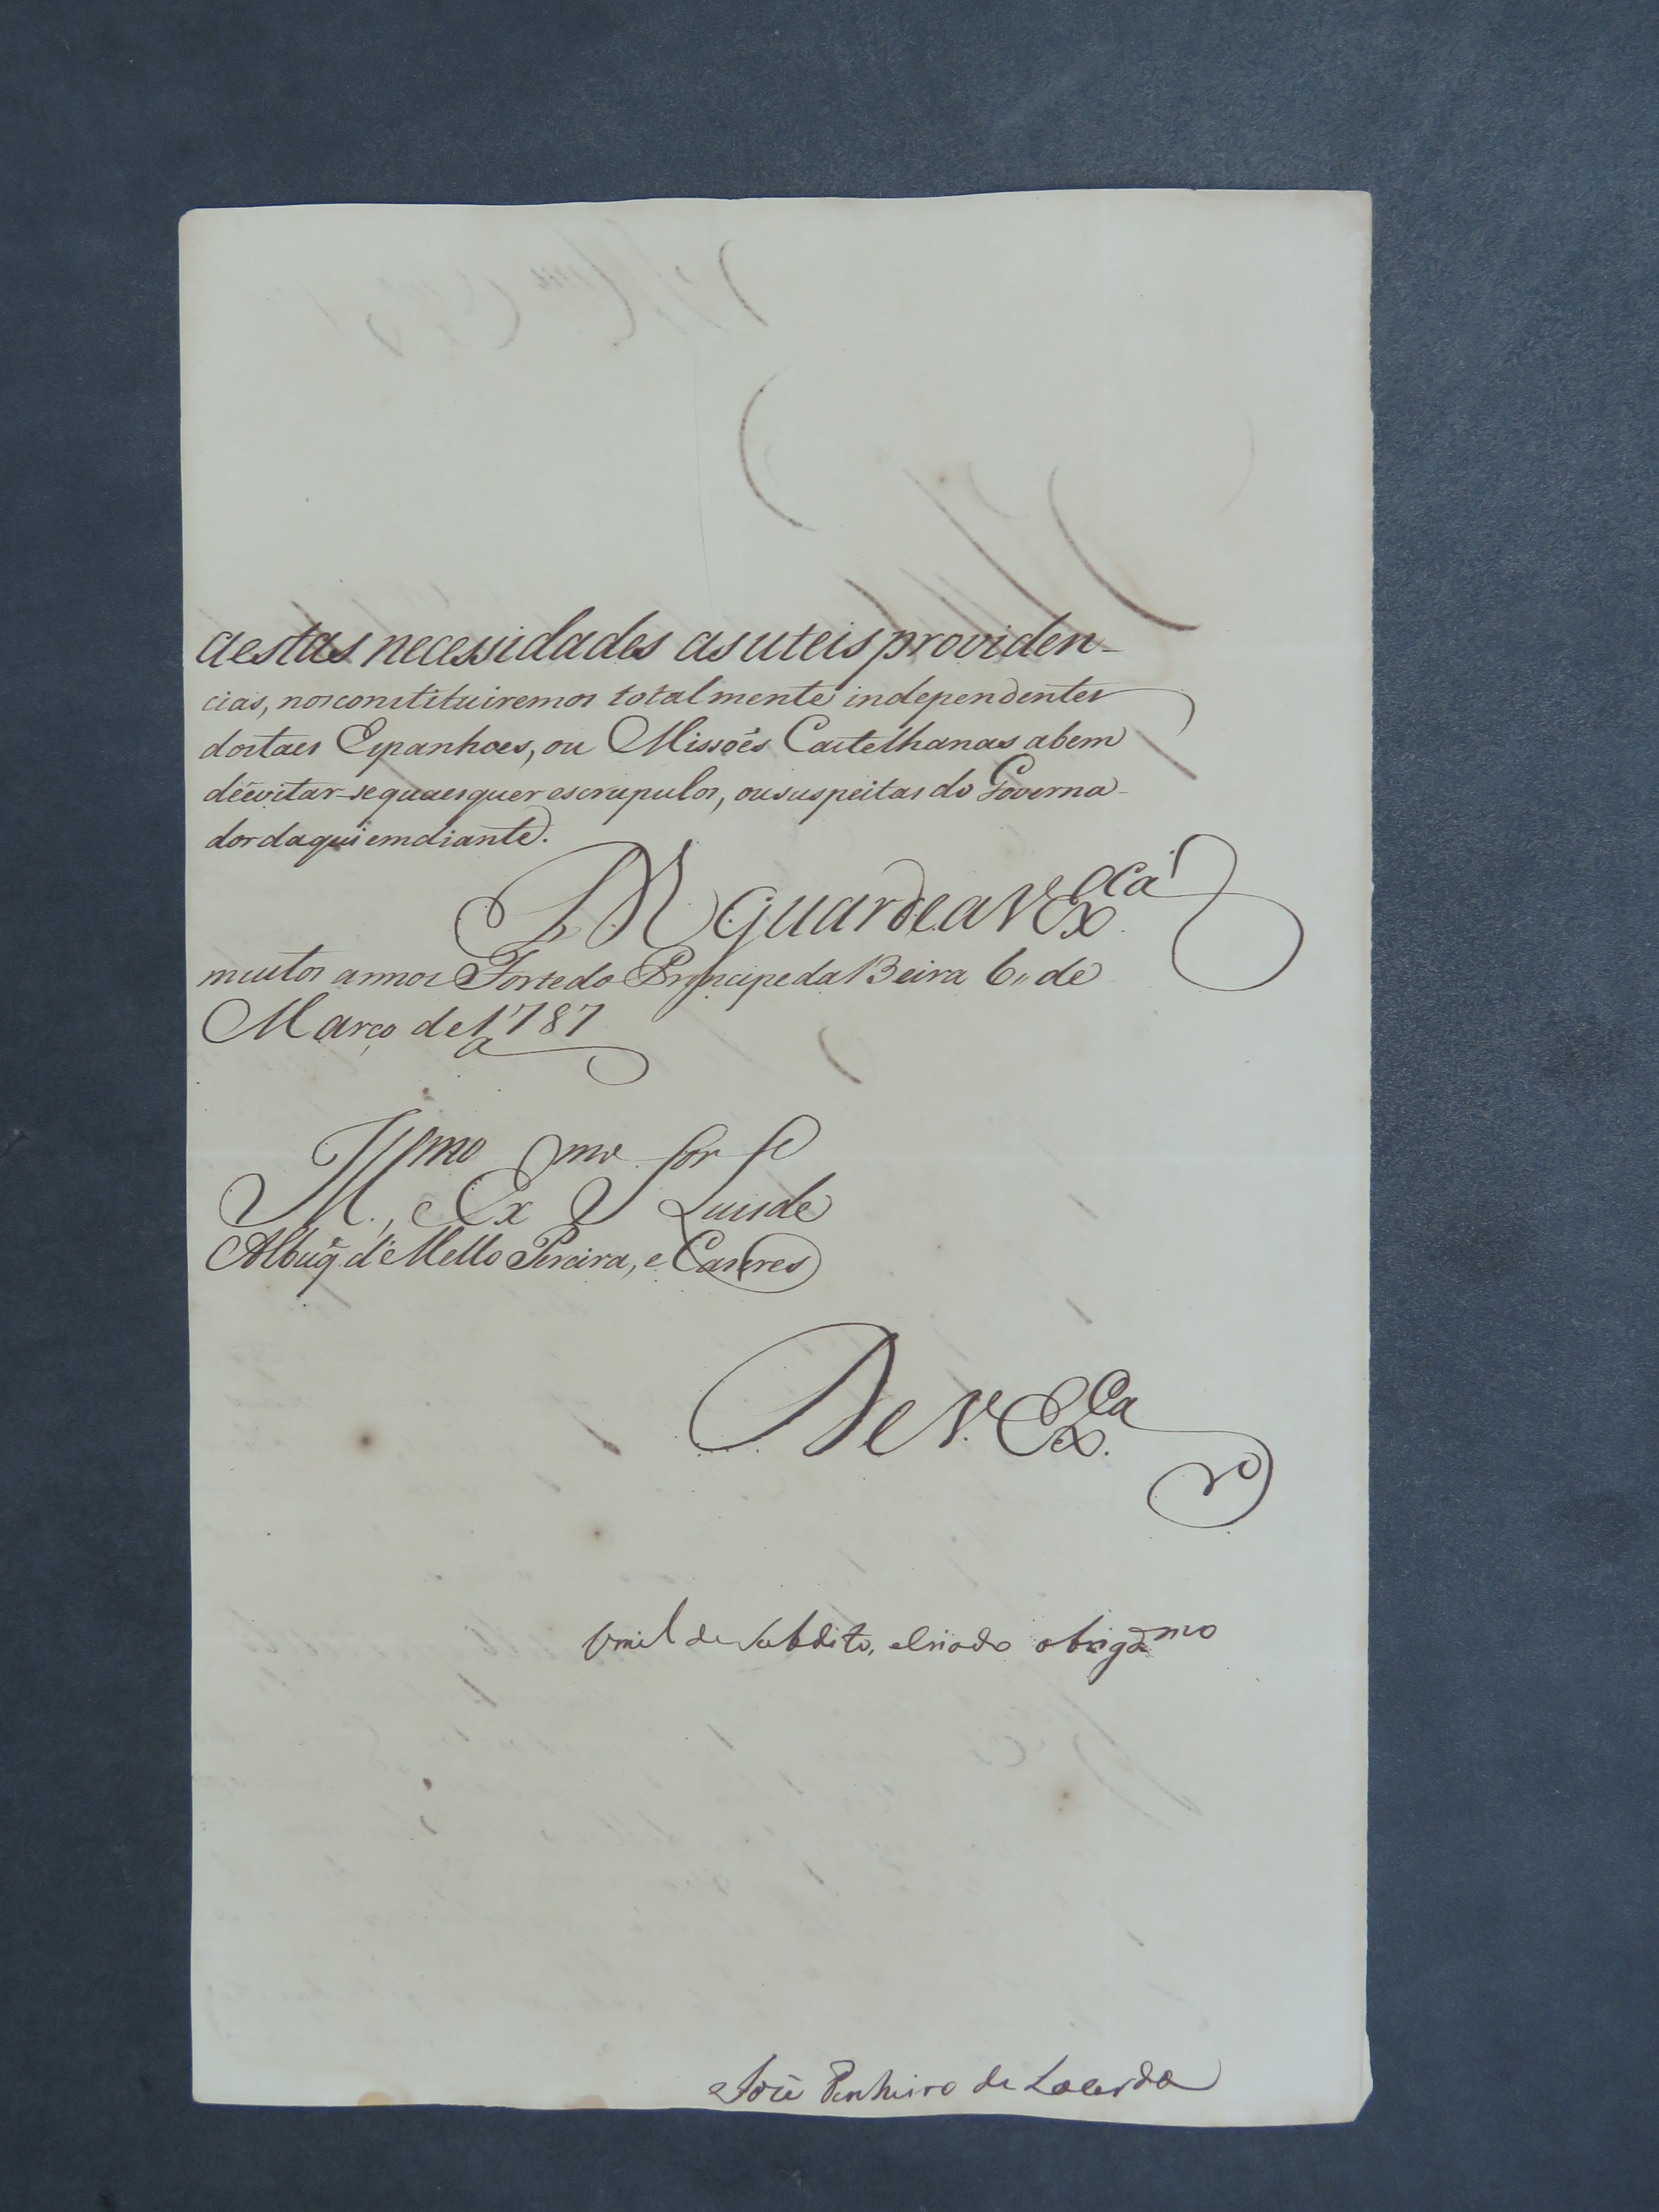 aestas necessidades as uteis providen-
cias, nos constituiremos totalmente independentes
dostaes Espanhoes, ou Missoẽs Castelhanas abem
deevitar-se quaesquer escrupulos, ou suspeitas do Governa-
dor daqui em diante.
D.s guarde a V. Ex.ca
muitos annos Forte do Principe da Beira 6,, de
Março de 1787
Ill.mo, e Ex.mo Sñor Luis de
Albuq̃ d'Mello Pereira, e Caseres
De V. Ex.ca
Umilde Subdito, eCriado obrigd.mo
Joze Pinheiro de Lacerda